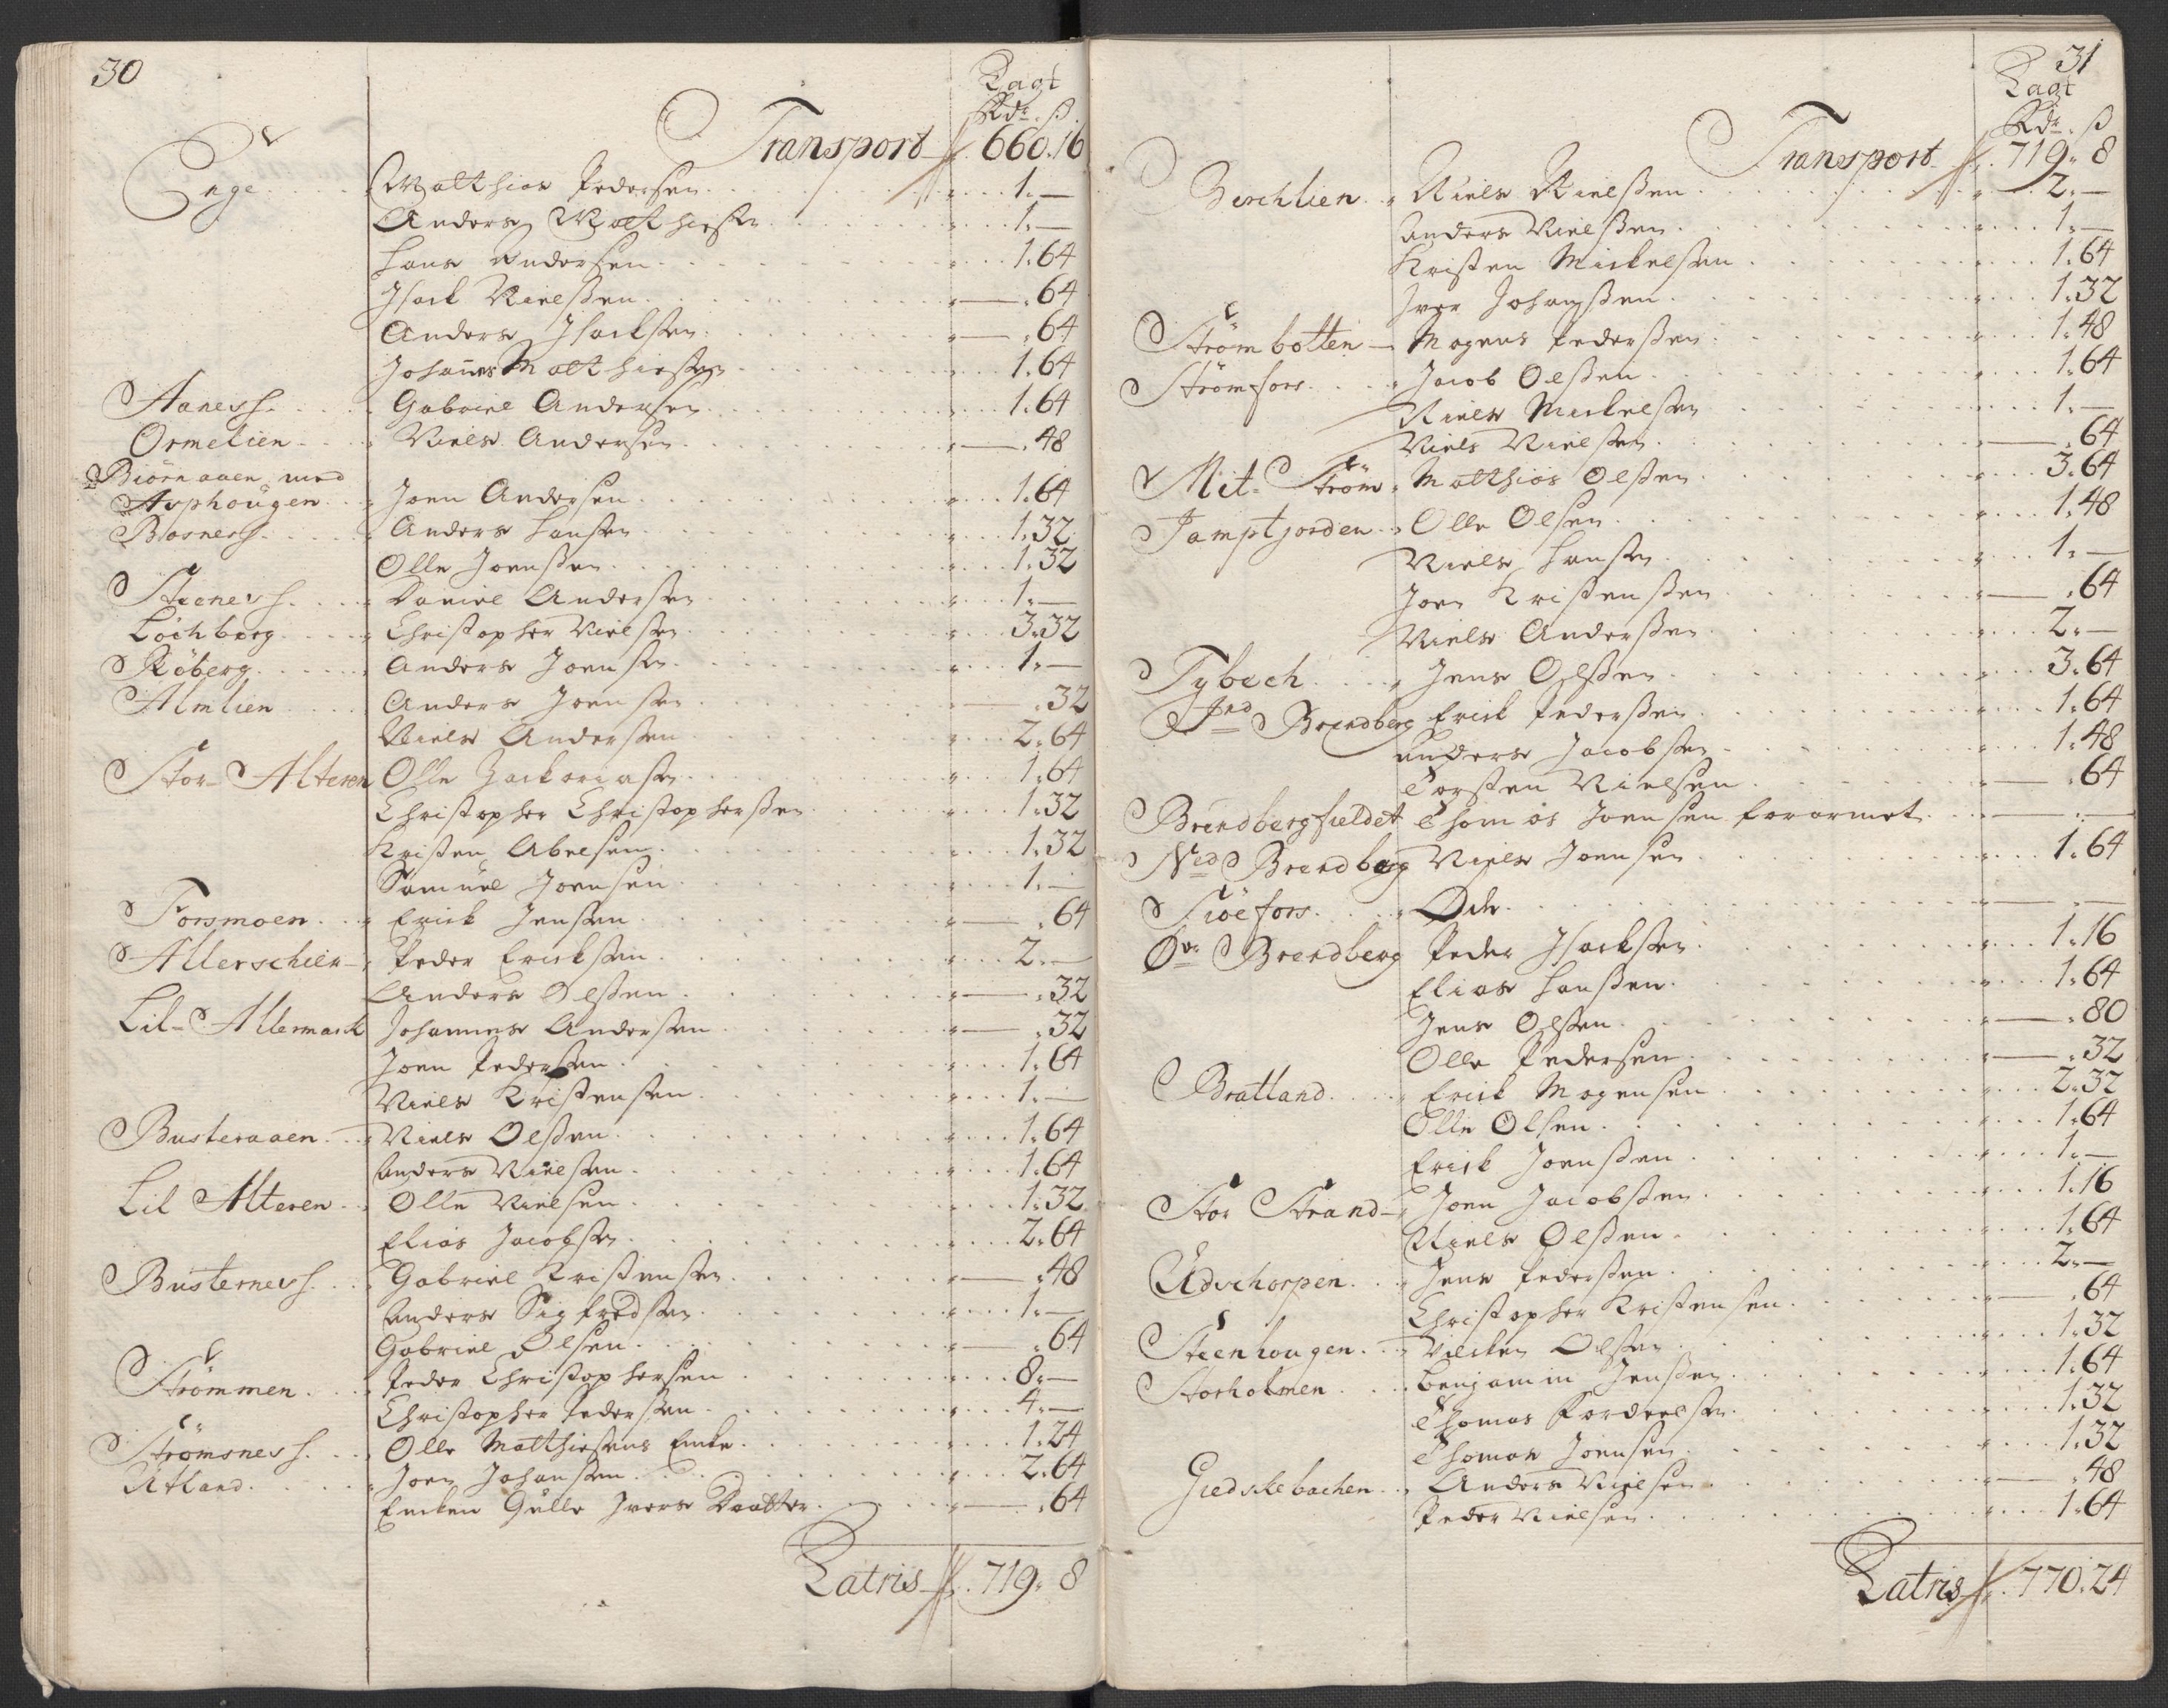 30
Lagt
Rdr. ß
Transport 660.16
Enge Matthias Pedersen 1.—
Anders Matthiesen 1.—
Hans Andersen 1.64
Isack Nielsen —.64
Anders Isacksen —.64
Johannes Matthiesen 1.64
Aanes Gabriel Andersen 1.64
Ormelien Niels Andersen —.48
Biörnaaen med
Arphougen Joen Andersen 1.64
Bosnes Anders Hansen 1.32
Olle Joensen 1.32
Steenes Daniel Andersen 1.—
Löchberg Christopher Nielsen 3.32
Röberg Anders Joensen 1.—
Almlien Anders Joensen —.32
Niels Andersen 2.64
Stor-Alteren Olle Zackariasen 1.64
Christopher Christophersen 1.32
Kristen Abelsen 1.32
Samuel Joensen 1.—
Forsmoen Erick Jensen —.64
Allerschier Peder Ericksen 2.—
Anders Olsen —.32
Lil-Allermarck Johannes Andersen —.32
Joen Pedersen 1.64
Niels Kristensen 1.—
Busteraaen Niels Olsen 1.64
Anders Nielsen 1.64
Lil Alteren Olle Nielsen 1.32
Elias Jacobsen 2.64
Busternes Gabriel Kristensen —.48
Anders Sigfredsen 1.—
Gabriel Olsen —.64
Strömmen Peder Christophersen 8.—
Christopher Pedersen 4.—
Strömsnes Olle Matthiesens Encke 1.24
Utland Joen Johansen 2.64
Encken Gulle Ivers Daatter —.64
Latris 719.8
31
Lagt
Rdr. ß
Transport 719.8
Berchlien Niels Nielsen 2.—
Anders Nielsen 1.—
Kristen Mickelsen 1.64
Iver Johansen 1.32
Strömbotten Mogens Pedersen 1.48
Strömfors Jacob Olsen 1.64
Niels Mickelsen 1.—
Niels Nielsen —.64
Mit-Ström Matthias Olsen 3.64
Jamptjorden Olle Olsen 1.48
Niels Hansen 1.—
Joen Kristensen —.64
Niels Andersen 2.—
Tybech Jens Olsen 3.64
Ind Brendberg Erick Pedersen 1.64
Anders Jacobsen 1.48
Torsten Nielsen —.64
Brendbergfieldet Thomas Joensen forarmet —.—
Ned Brendberg Niels Joensen 1.64
Siöefors Øde — —
Ør Brendberg Peder Isacksen 1.16
Elias Hansen 1.64
Jens Olsen —.80
Olle Pedersen —.32
Bratland Erick Mogensen 2.32
Olle Olsen 1.64
Erick Joensen 1.—
Stor Strand Joen Jacobsen 1.16
Niels Olsen 1.64
Udschorpen Jens Pedersen 2.—
Christopher Kristensen —.64
Steenhougen Nielsen Olsen 1.32
Storholmen Benjamin Jensen 1.64
Thomas Fordeelsen 1.32
Thomas Joensen 1.32
Giedskebachen Anders Nielsen —.48
Peder Nielsen 1.64
Latris 770.24